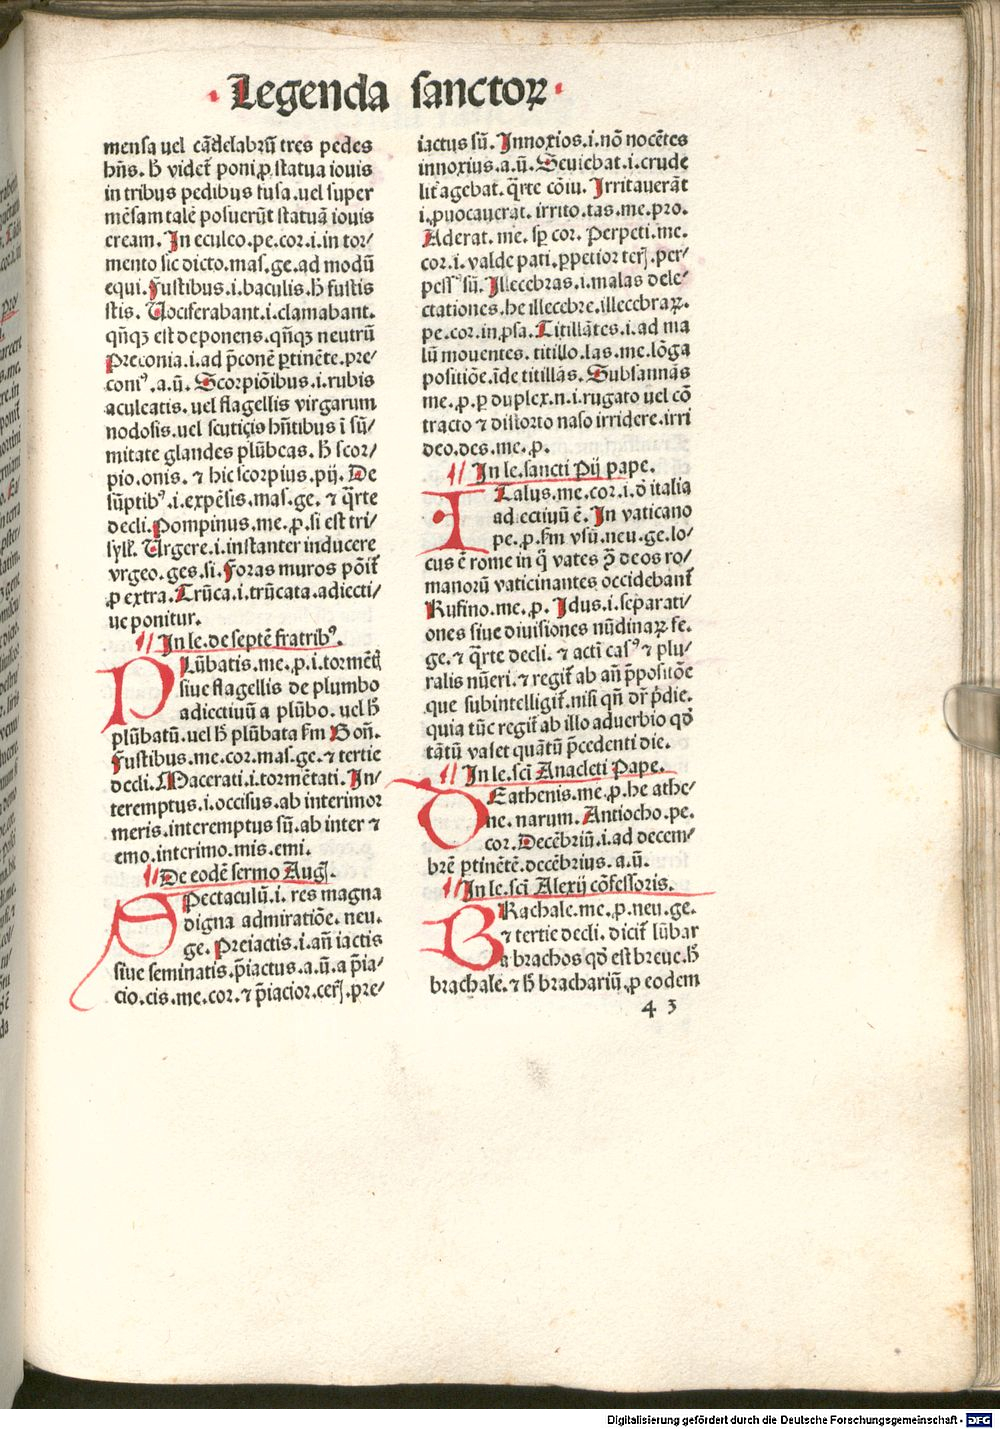 Legenda sanctoꝝ
mensa uel cãdelabrũ tres pedes
hñs. h̃ videt᷑ poni ꝓ statua iouis
in tribus pedibus fusa .uel super
mẽsam talẽ posuerũt statuã iouis
eream. In eculeo. pe. cor. i. in tor/
mento sic dicto. mas. ge. ad modũ
equi. Fustibus. i. baculis. h̃ fustis
stis. Vociferabant. i. clamabant.
qñqꝫ est deponens. qñqꝫ neutrũ
Preconia. i. ad p̃conẽ ꝑtinẽte. pre/
coniꝰ. a. ũ. Scorpiõibus. i. rubis
aculeatis. uel flagellis virgarum
nodosis. uel scuticis hñtibus ĩ sũ/
mitate glandes plũbeas. h̃ scor/
pio. onis. ⁊ hic scorpius. pij. De
sũptibꝰ. i. expẽsis. mas. ge. ⁊ q̃rte
decli. Pompinus. me. ꝓ. si est tri/
syll᷑. Urgere. i. instanter inducere
vrgeo. ges. si. Foras muros põit᷑
ꝓ extra. Trũca. i. trũcata. adiecti/
ue ponitur.
In le. de septẽ fratribꝰ.
PLũbatis. me. ꝓ. i. tormẽtꝭ
siue flagellis de plumbo
adiectiuũ a plũbo. uel h̃
plũbatũ. uel h̃ plũbata ẜm Boñ.
Fustibus. me. cor. mas. ge. ⁊ tertie
decli. Macerati. i. tormẽtati. In/
teremptus. i. occisus. ab interimor
meris. interemptus sũ. ab inter ⁊
emo. interimo. mis. emi.
De eodẽ sermo Augꝭ.
SPectaculũ. i. res magna
digna admiratiõe. neu.
ge. Preiactis. i. añ iactis
siue seminatis. p̃iactus. a. ũ. a p̃ia/
cio. cis. me. cor. ⁊ p̃iacior. cerꝭ. pre/
iactus sũ. Innoxios. i. nõ nocẽtes
innoxius. a. ũ. Seuiebat. i. crude
lit᷑ agebat. q̃rte cõiu. Irritauerãt
i. ꝓuocauerãt. irrito. tas. me. pro.
Aderat. me. sꝑ cor. Perpeti. me.
cor. i. valde pati. ꝑpetior terꝭ. per/
pessꝰ sũ. Illecebras. i. malas dele/
ctationes. he illecebre. illecebraꝝ.
pe. cor. in ꝓsa. Titillãtes. i. ad ma
lũ mouentes. titillo. las. me. lõga
positiõe. ĩde titillãs. Subsannãs
me. ꝓ. ꝑ duplex. n. i. rugato uel cõ
tracto ⁊ distorto naso irridere. irri
deo. des. me. ꝓ.
In le. sancti Pij pape.
ITalus. me. cor. i. õ italia
adiectiuũ ẽ. In vaticano
pe. ꝓ. ẜm vsũ. neu. ge. lo/
cus ẽ rome in q̃ vates ꝙ̃ deos ro/
manorũ vaticinantes occidebant᷑
Rufino. me. ꝓ. Idus. i. separati/
ones siue diuisiones nũdinaꝝ fe.
ge. ⁊ q̃rte decli. ⁊ acti casꝰ ⁊ plu/
ralis nũeri. ⁊ regit᷑ ab añ p̃positõe
que subintelligit᷑. nisi qñ dr̃ p̃die.
quia tũc regit᷑ ab illo aduerbio qđ
tãtũ valet quãtũ p̃cedenti die.
In le. sc̃i Anacleti Pape.
DEathenis. me. ꝓ. he athe/
ne. narum. Antiocho. pe.
cor. Decẽbriũ. i. ad decem/
brẽ ꝑtinẽtẽ. decẽbrius. a. ũ.
In le. sc̃i Alexij cõfessoris.
BRachale. me. ꝓ. neu. ge.
⁊ tertie decli. dicit᷑ lũbar
a brachos qđ est breue. h̃
brachale. ⁊ h̃ brachariũ. ꝓ eodem
4 3
Digitalisierung gefördert durch die Deutsche Forschungsgemeinschaft - DFG